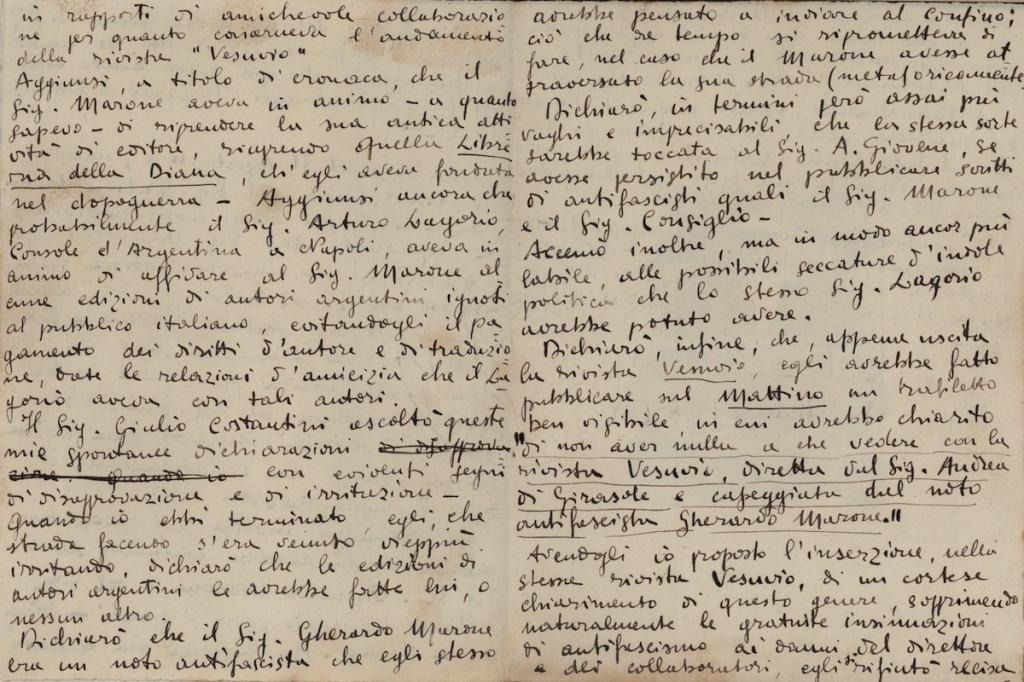 in rapporti di amichevole collaborazio
ne per quanto concerneva l'andamento
della rivista "Vesuvio"
Aggiunsi, a titolo di cronaca, che il
Sig. Marone aveva in animo - a quanto
sapevo - di riprendere la sua antica atti
vità di editore, riaprendo quella Libre
ria della Diana, ch'egli aveva fondata
nel dopoguerra - Aggiunsi ancora che
probabilmente il Sig. Arturo Lagorio,
Console d'Argentina a Napoli, aveva in
animo di affidare al Sig. Marone al
cune edizioni di autori argentini ignoti
al pubblico italiano, evitandogli il pa
gamento dei diritti d'autore e di traduzio
ne, date le relazioni d'amicizia che il La
gorio aveva con tali autori.
Il Sig. Giulio Costantini ascoltò queste
mie spontanee dichiarazioni di disapprova
zione. Quando io con evidenti segni
di disapprovazione e di irritazione -
Quando io ebbi terminato, egli, che
strada facendo s'era venuto vieppiù
irritando, dichiarò che le edizioni di
autori argentini le avrebbe fatte lui, o
nessun altro.
Dichiarò che il Sig. Gherardo Marone
era un noto antifascista che egli stesso
avrebbe pensato a inviare al confino;
ciò che da tempo si riprometteva di
fare, nel caso che il Marone avesse at
traversato la sua strada (metaforicamente
Dichiarò, in termini però assai più
vaghi e imprecisabili, che la stessa sorte
sarebbe toccata al Sig. A. Giovene, se
avesse persistito nel pubblicare scritti
di antifascisti quali il Sig. Marone
e il Sig. Consiglio -
Accennò inoltre, ma in modo ancor più
labile, alle possibili seccature d'indole
politica che lo stesso Sig. Lagorio
avrebbe potuto avere.
Dichiarò, infine, che, appena uscita
la rivista Vesuvio, egli avrebbe fatto
pubblicare sul Mattino un trafiletto
ben visibile, in cui avrebbe chiarito
"di non aver nulla a che vedere con la
rivista Vesuvio, diretta dal Sig. Andrea
di Girasole e capeggiata dal noto
antifascista Gherardo Marone."
Avendogli io proposto l'inserzione, nella
stessa rivista Vesuvio, di un cortese
chiarimento di questo genere, sopprimendo
naturalmente le gratuite insinuazioni
di antifascismo ai danni del direttore
e dei collaboratori, egli si rifiutò recisa